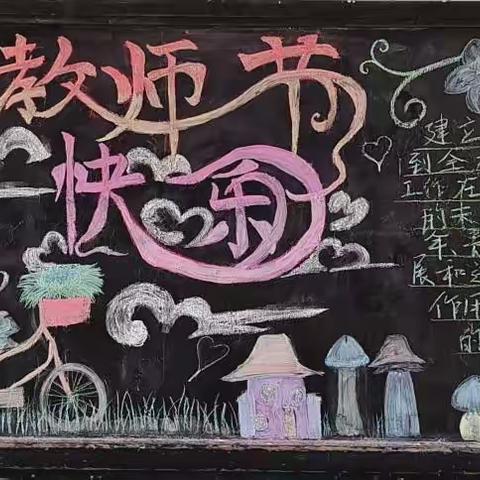 教师节
快乐
建立
到全
工作在
的未
年
展和
作用
的